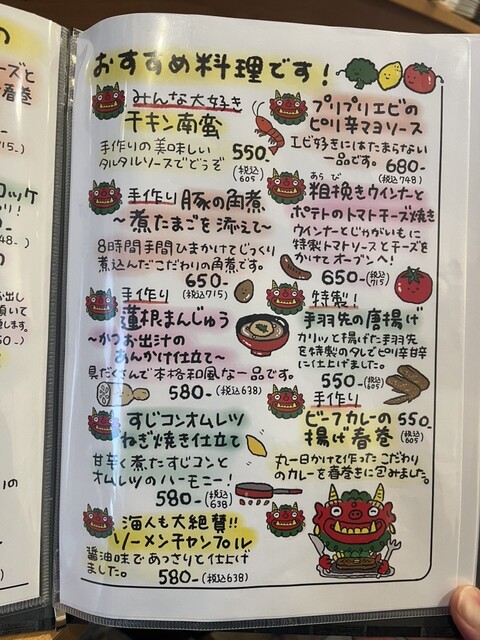 おすすめ料理です!
みんな大好き
チキン南蛮
手作りの美味しい
タルタルソースでどうぞ
550-
(税込
605)
手作り 豚の角煮
~煮たまごを添えて~
8時間手間ひまかけてじっくり
煮込んだこだわりの角煮です。
650-
(税込715)
手作り
蓮根まんじゅう
~かつお出汁の
あんかけ仕立て~
具だくさんで本格和風な一品です。
580-(税込638)
すじコンオムレツ
ねぎ焼き仕立て
甘辛く煮たすじコンと
オムレツのハーモニー!
580-
(税込
638)
海人も大絶賛!!
ソーメンチャンプル
醤油味であっさりと仕上げ
ました。
580-(税込638)
プリプリエビの
ピリ辛マヨソース
エビ好きにはたまらない
一品です。
680-
(税込748)
あらび
粗挽きウインナーと
ポテトのトマトチーズ焼き
ウインナーとじゃがいもに
特製トマトソースとチーズを
かけてオーブンへ!
650-(税込
715)
特製!
手羽先の唐揚げ
カリッと揚げた手羽先
を特製のタレでピリ辛甘辛
に仕上げました。
550-
(税込
605)
手作り
ビーフカレーの
揚げ春巻
550-
(税込
605)
丸一日かけて作ったこだわり
のカレーを春巻きに包みました。
の
ーズと
春巻
715-)
ロッケ
り!
48-)